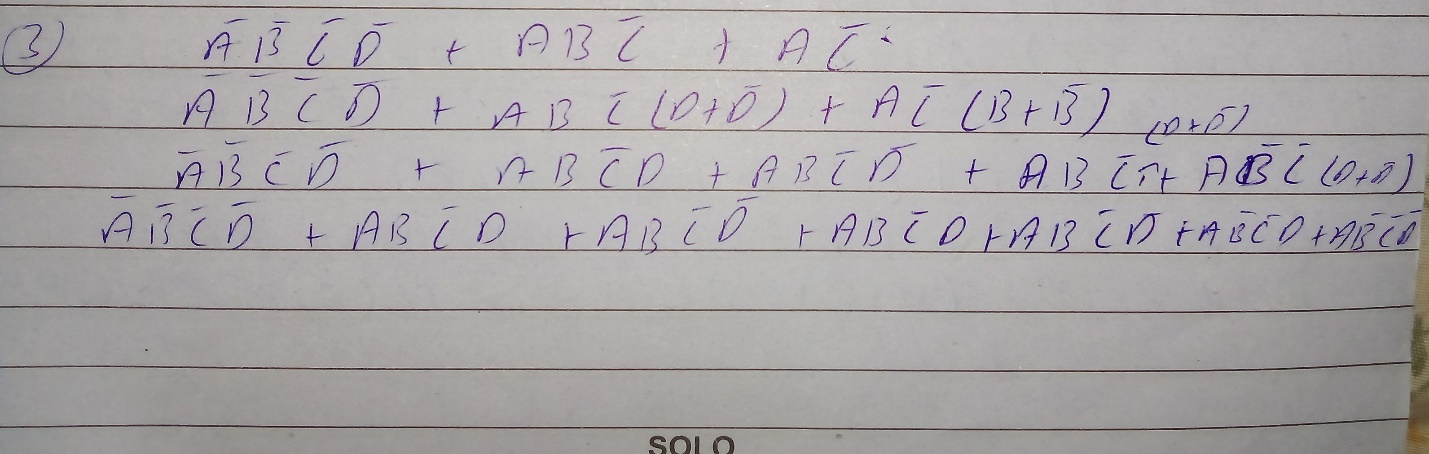 ③ A̅ B̅ C̅ D̅ + A B C̅ + A C̅
A̅ B̅ C̅ D̅ + A B C̅ (D+D̅) + A C̅ (B+B̅) (D+D̅)
A̅ B̅ C̅ D̅ + A B C̅ D + A B C̅ D̅ + A B C̅ + A B̅ C̅ (D+D̅)
A̅ B̅ C̅ D̅ + A B C̅ D + A B C̅ D̅ + A B C̅ D + A B C̅ D̅ + A B̅ C̅ D + A B̅ C̅ D̅
SOLO